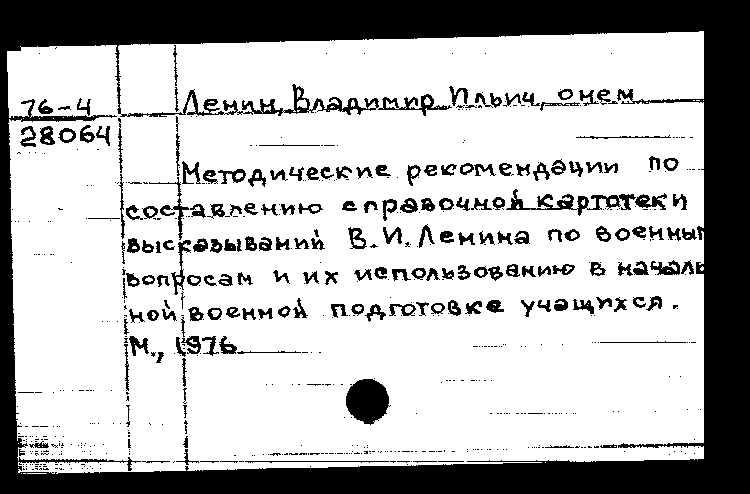 76-4
28064
Ленин, Владимир Ильич, о нем
Методические рекомендации по
составлению справочной картотеки
высказываний В.И. Ленина по военным
вопросам и их использованию в началь
ной военной подготовке учащихся.
М., 1976